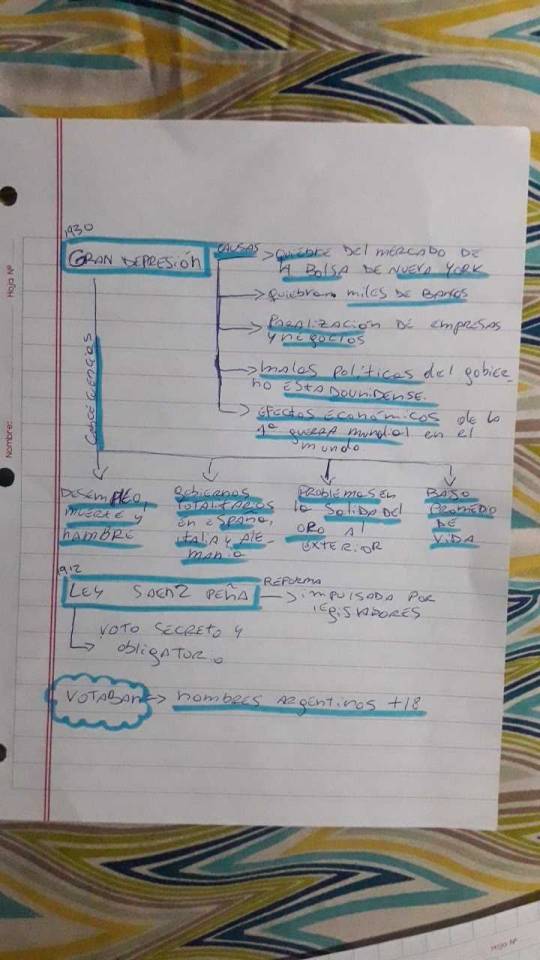 1930
GRAN DEPRESIÓN
CAUSAS
QUIEBRE DEL MERCADO DE
LA BOLSA DE NUEVA YORK
QUIEBRAN MILES DE BANCOS
PARALIZACIÓN DE EMPRESAS
Y NEGOCIOS
MALAS POLÍTICAS del gobier-
no ESTADOUNIDENSE.
EFECTOS ECONÓMICOS de la
1ª guerra mundial en el
mundo
DESEMPLEO,
MUERTE Y
HAMBRE
gobiernos
TOTALITARIOS
en ESPAÑA,
ITALIA Y ALE-
MANIA
PROBLEMAS EN
la SALIDA DEL
ORO AL
EXTERIOR
BAJO
PROMEDIO
DE
VIDA
1912
LEY SAENZ PEÑA
REFORMA
IMPULSADA POR
LEGISLADORES
VOTO SECRETO Y
obligatorio
VOTABAN
hombres Argentinos +18
Nombre:
Hoja Nº
Hoja Nº